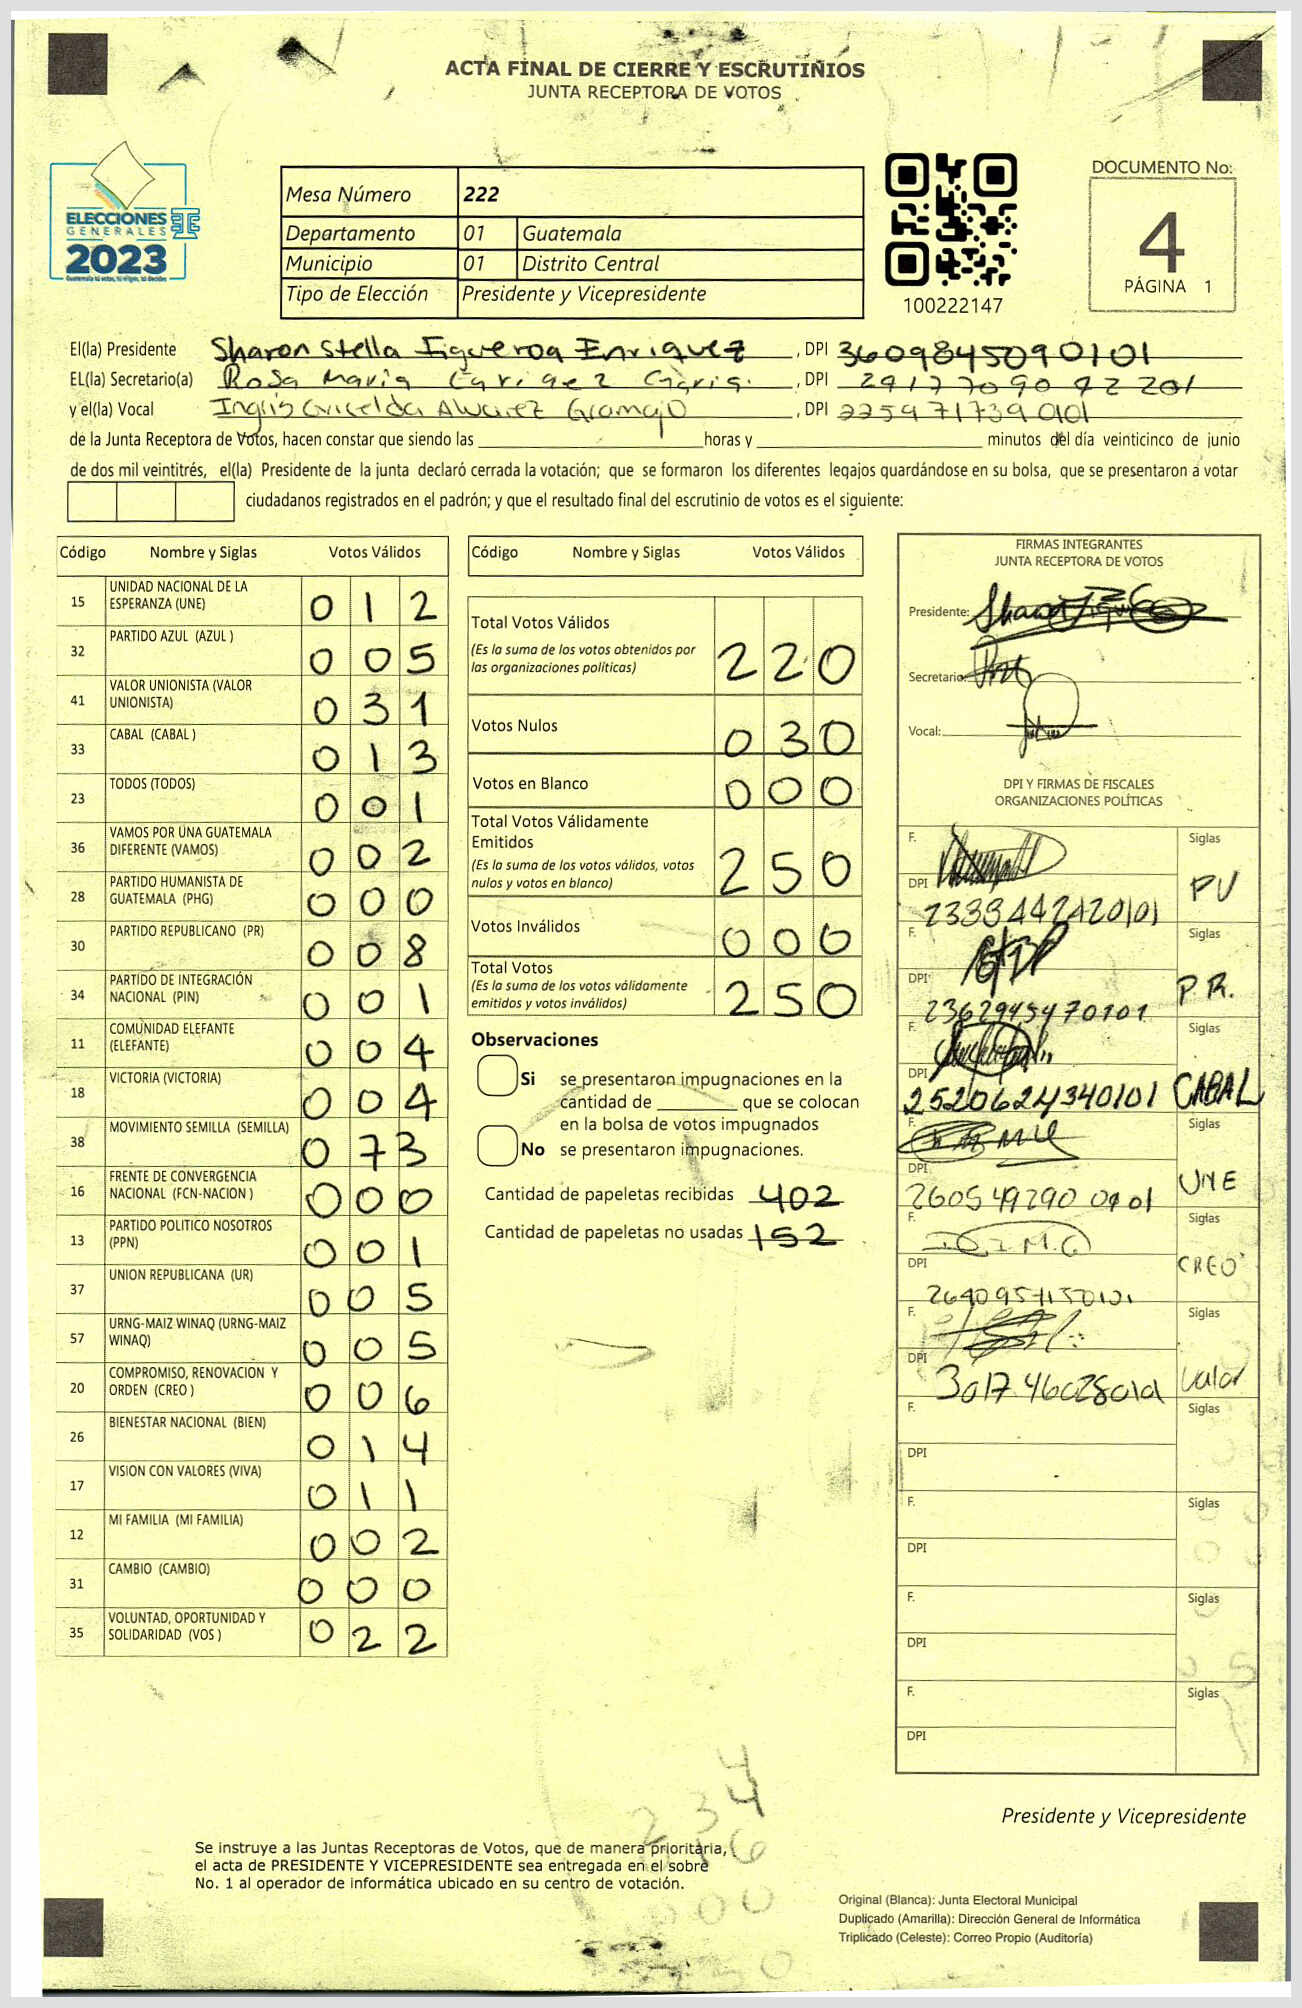 ACTA FINAL DE CIERRE Y ESCRUTINIOS
JUNTA RECEPTORA DE VOTOS
ELECCIONES
GENERALES
2023
Mesa Número 222
Departamento 01 Guatemala
Municipio 01 Distrito Central
Tipo de Elección Presidente y Vicepresidente
100222147
DOCUMENTO No:
4
PÁGINA 1
El(la) Presidente Sharon Stella Figueroa Enriquez, DPI 3609845090101
EL(la) Secretario(a) Rosa Maria, DPI
y el(la) Vocal Alvarez Gramajo, DPI 2259717390101
de la Junta Receptora de Votos, hacen constar que siendo las horas y minutos del día veinticinco de junio
de dos mil veintitrés, el(la) Presidente de la junta declaró cerrada la votación; que se formaron los diferentes legajos quardándose en su bolsa, que se presentaron a votar
ciudadanos registrados en el padrón; y que el resultado final del escrutinio de votos es el siguiente:
Código Nombre y Siglas Votos Válidos
15 UNIDAD NACIONAL DE LA ESPERANZA (UNE) 012
32 PARTIDO AZUL (AZUL ) 005
41 VALOR UNIONISTA (VALOR UNIONISTA) 031
33 CABAL (CABAL ) 013
23 TODOS (TODOS) 001
36 VAMOS POR UNA GUATEMALA DIFERENTE (VAMOS) 002
28 PARTIDO HUMANISTA DE GUATEMALA (PHG) 000
30 PARTIDO REPUBLICANO (PR) 008
34 PARTIDO DE INTEGRACIÓN NACIONAL (PIN) 001
11 COMUNIDAD ELEFANTE (ELEFANTE) 004
18 VICTORIA (VICTORIA) 004
38 MOVIMIENTO SEMILLA (SEMILLA) 073
16 FRENTE DE CONVERGENCIA NACIONAL (FCN-NACION ) 000
13 PARTIDO POLITICO NOSOTROS (PPN) 001
37 UNION REPUBLICANA (UR) 005
57 URNG-MAIZ WINAQ (URNG-MAIZ WINAQ) 005
20 COMPROMISO, RENOVACION Y ORDEN (CREO ) 006
26 BIENESTAR NACIONAL (BIEN) 014
17 VISION CON VALORES (VIVA) 011
12 MI FAMILIA (MI FAMILIA) 002
31 CAMBIO (CAMBIO) 000
35 VOLUNTAD, OPORTUNIDAD Y SOLIDARIDAD (VOS ) 022
Código Nombre y Siglas Votos Válidos
Total Votos Válidos 220
(Es la suma de los votos obtenidos por
las organizaciones politicas)
Votos Nulos 030
Votos en Blanco 000
Total Votos Válidamente
Emitidos 250
(Es la suma de los votos válidos, votos
nulos y votos en blanco)
Votos Inválidos 000
Total Votos 250
(Es la suma de los votos válidamente
emitidos y votos inválidos)
Observaciones
Si se presentaron impugnaciones en la
cantidad de que se colocan
en la bolsa de votos impugnados
No se presentaron impugnaciones.
Cantidad de papeletas recibidas 402
Cantidad de papeletas no usadas 152
FIRMAS INTEGRANTES
JUNTA RECEPTORA DE VOTOS
Presidente:
Secretario:
Vocal:
DPI Y FIRMAS DE FISCALES
ORGANIZACIONES POLÍTICAS
F. Siglas
DPI 2333442420101 PU
F. Siglas
DPI 2362945470101 P.R.
F. Siglas
DPI 2520624340101 CABAL
F. Siglas
DPI 2605492900901 UNE
F. Siglas
DPI CREO
F. Siglas
DPI Valor
F. Siglas
DPI
F. Siglas
DPI
F. Siglas
DPI
F. Siglas
DPI
Presidente y Vicepresidente
Se instruye a las Juntas Receptoras de Votos, que de manera prioritaria,
el acta de PRESIDENTE Y VICEPRESIDENTE sea entregada en el sobre
No. 1 al operador de informática ubicado en su centro de votación.
Original (Blanca): Junta Electoral Municipal
Duplicado (Amarilla): Dirección General de Informática
Triplicado (Celeste): Correo Propio (Auditoría)